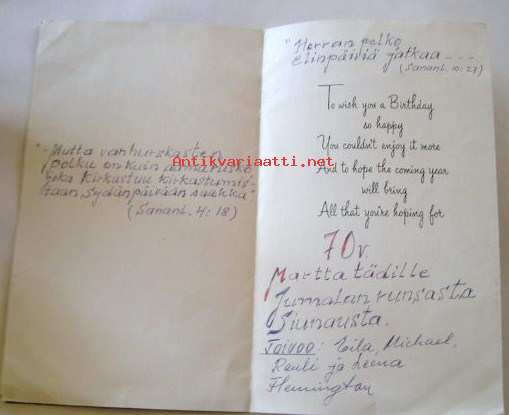 "-Mutta vanhurskasten
polku on kuin aamurusko,
joka kirkastuu kirkastumis-
taan, sydänpäivään saakka"
(Sananl. 4:18)
Antikvariaatti.net
"Herran pelko
elinpäiviä jatkaa - - -
(Sananl. 10:27)
To wish you a Birthday
so happy
You couldn't enjoy it more
And to hope the coming year
will bring
All that you're hoping for
70v.
Martta tädille
Jumalan runsasta
Siunausta.
Toivoo: Eila, Michael,
Rauli ja Leena
Flemington